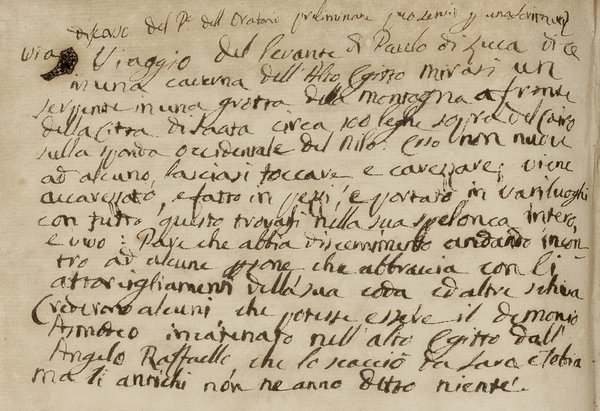 discorso del Pe dell Oratori preliminare
Viaggio del levante di Paulo di Luca dice
in una caverna dell'Alto Egitto mirasi un
serpente in una grotta della montagna a fronte
della Citta di Saata circa 100 leghe sopra del Cairo
sulla sponda occidentale del Nilo. Esso non nuoce
ad alcuno, lasciasi toccare e carezzare, viene
accarezzato, e fatto in pezzi, e portato in vari luoghi
con tutto questo trovasi nella sua spelonca intero,
e vivo: Pare che abbia discernimento andando incon
tro ad alcune psone che abbraccia con li
attorcigliamenti della sua coda ed altre schiva
Crederano alcuni che potesse essere il demonio
Asmodeo incatenato nell'alto Egitto dall'
Angelo Raffaelle che lo scacciò da Sara e Tobia
ma li antichi non ne anno detto niente.